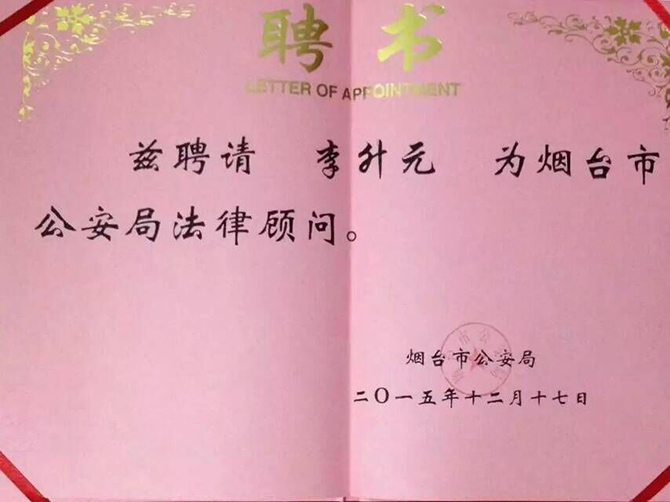 聘书
LETTER OF APPOINTMENT
兹聘请 李升元 为烟台市
公安局法律顾问。
烟台市公安局
二〇一五年十二月十七日